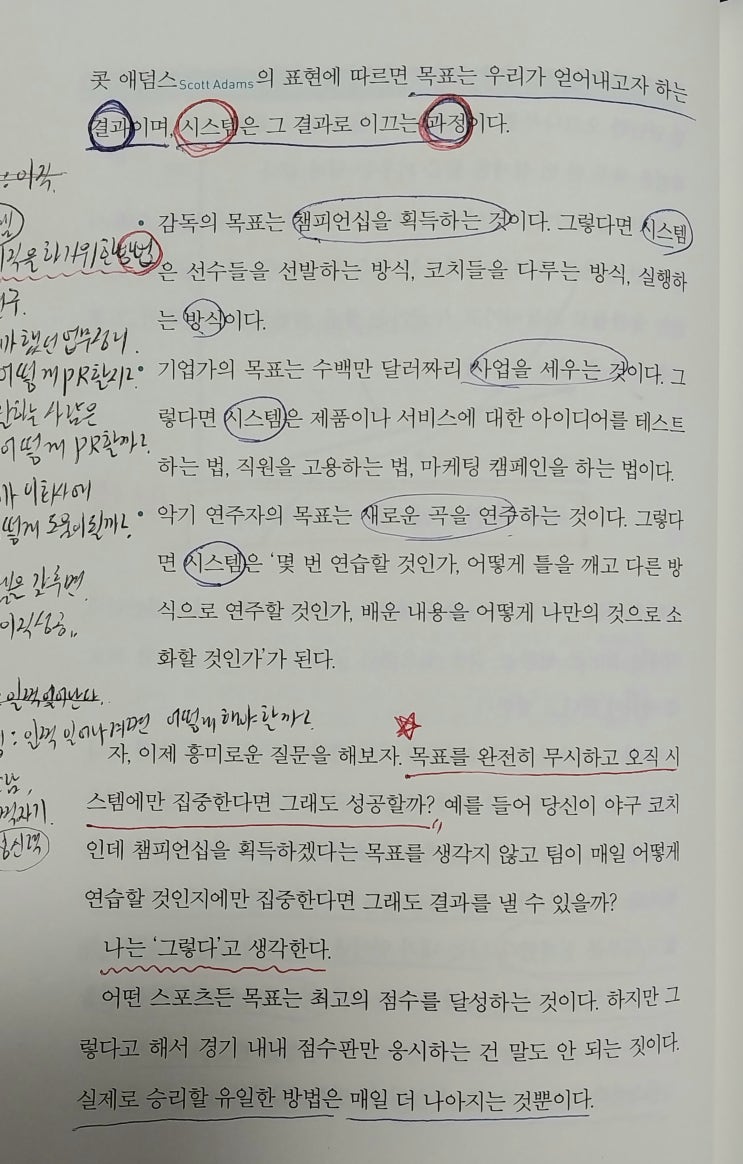 콧 애덤스Scott Adams의 표현에 따르면 목표는 우리가 얻어내고자 하는
결과이며, 시스템은 그 결과로 이끄는 과정이다.
: 이직.
• 감독의 목표는 챔피언십을 획득하는 것이다. 그렇다면 시스템
은 선수들을 선발하는 방식, 코치들을 다루는 방식, 실행하
는 방식이다.
• 기업가의 목표는 수백만 달러짜리 사업을 세우는 것이다. 그
렇다면 시스템은 제품이나 서비스에 대한 아이디어를 테스트
하는 법, 직원을 고용하는 법, 마케팅 캠페인을 하는 법이다.
• 악기 연주자의 목표는 새로운 곡을 연주하는 것이다. 그렇다
면 시스템은 ‘몇 번 연습할 것인가, 어떻게 틀을 깨고 다른 방
식으로 연주할 것인가, 배운 내용을 어떻게 나만의 것으로 소
화할 것인가’가 된다.
방법
했던 업무정리.
어떻게 PR할지?
사람은
어떻게 PR할까?
이직성공,,
일찍 일어난다.
: 일찍 일어나려면 어떻게 해야 할까?
자, 이제 흥미로운 질문을 해보자. 목표를 완전히 무시하고 오직 시
스템에만 집중한다면 그래도 성공할까? 예를 들어 당신이 야구 코치
인데 챔피언십을 획득하겠다는 목표를 생각지 않고 팀이 매일 어떻게
연습할 것인지에만 집중한다면 그래도 결과를 낼 수 있을까?
나는 ‘그렇다’고 생각한다.
어떤 스포츠든 목표는 최고의 점수를 달성하는 것이다. 하지만 그
렇다고 해서 경기 내내 점수판만 응시하는 건 말도 안 되는 짓이다.
실제로 승리할 유일한 방법은 매일 더 나아지는 것뿐이다.